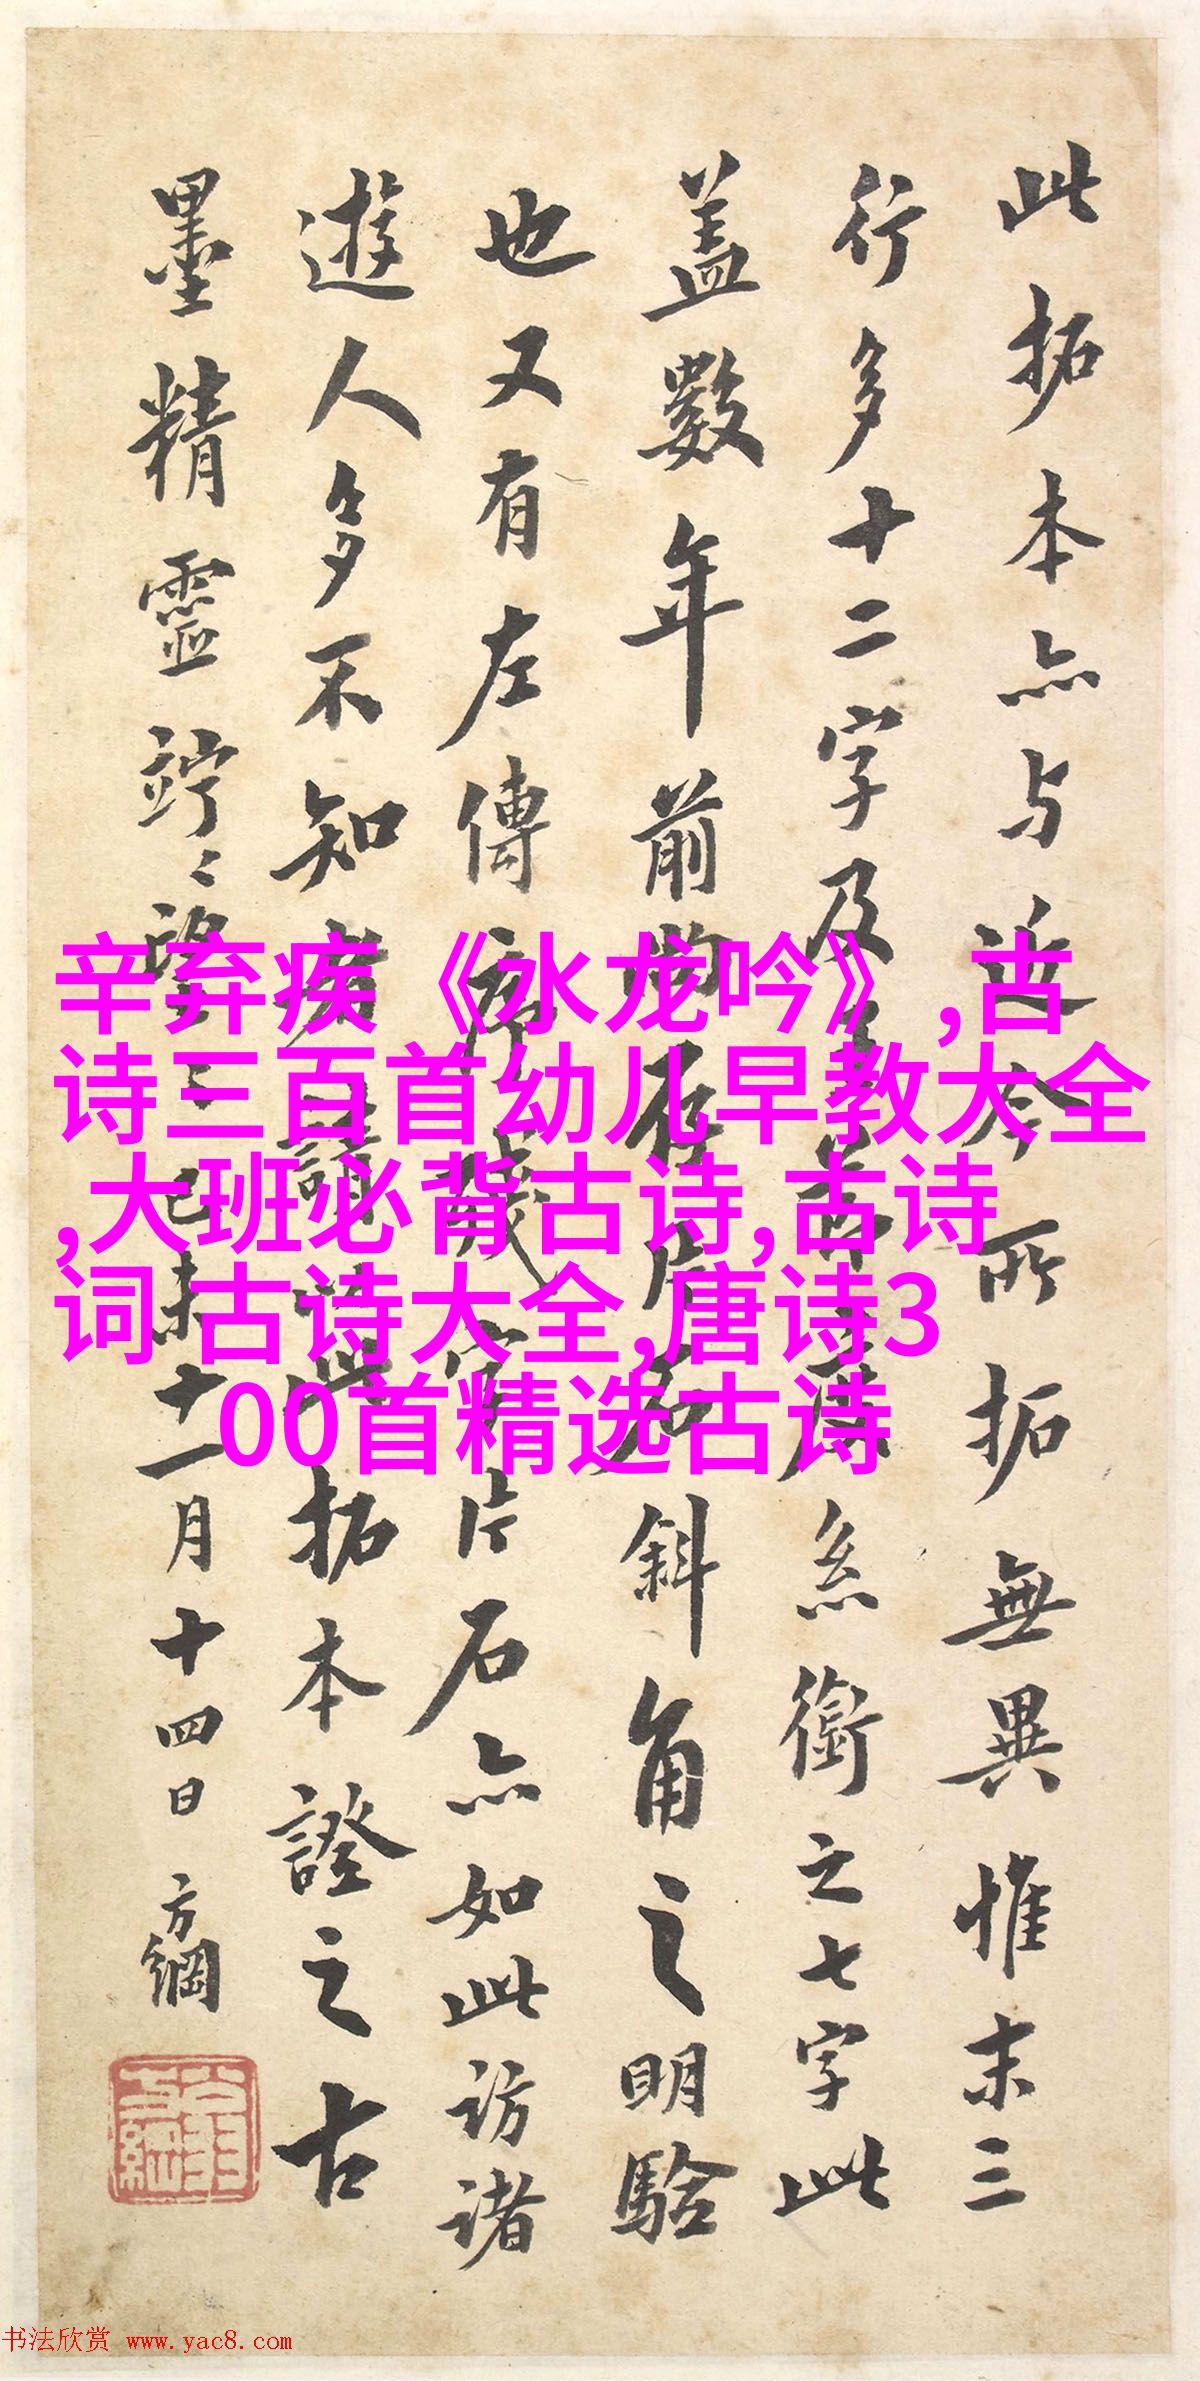 此拓本亦与近今所拓無異惟末三
行多十二字及
糸銜之七字此
蓋數年前
斜角之明驗
也又有左傳序殘
片石亦如此访诸
遊人多不知
拓本證之古
墨精靈竚〻望〻己未十一月十四日方綱
辛弃疾《水龙吟》,古
诗三百首幼儿早教大全
,大班必背古诗,古诗
词 古诗大全,唐诗3
00首精选古诗
书法欣赏 www.yac8.com